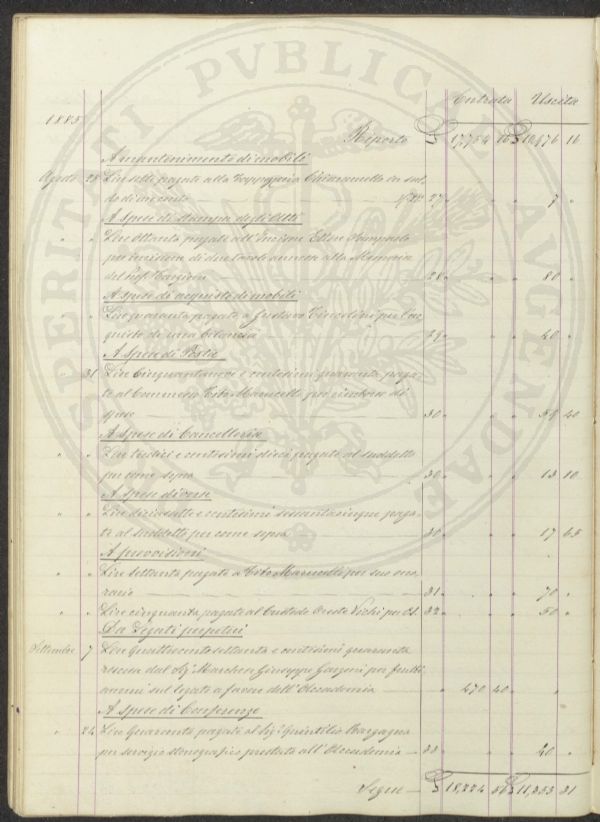 PERITATI PVBLICAE AVGENDAE
Entrata Uscita
1885
Riporto £ 17,754 16 £ 10,876 16
A mantenimento di mobili
Agosto 28 Lire sette pagate alla
do di 27 " " 7 "
A spese di stampa degli Atti
" " Lire Ottanta pagate all'Incisore Ettore
per incisione di due tavole annesse alla Memoria
del Prof. 28 " " 80 "
A spese di acquisto di mobili
" " Lire quaranta pagate a Gustavo per l'ac-
quisto di una bilancia 29 " " 40 "
A Spese di Posta
31 Lire Cinquantanove e centesimi quaranta paga-
te al Commesso Tito Marucelli per rimborso di
spese 30 " " 59 40
A Spese di Cancelleria
" " Lire tredici e centesimi dieci pagate al suddetto
per come sopra 30 " " 13 10
A spese diverse
" " Lire diciassette e centesimi sessantacinque paga-
te al suddetto per come sopra 30 " " 17 65
A provvisioni
" " Lire settanta pagate a Tito Marucelli per suo ono-
rario 31 " " 70 "
" " Lire cinquanta pagate al Custode Oreste per Id. 32 " " 50 "
Da Legati perpetui
Settembre 7 Lire Quattrocentosettanta e centesimi quaranta
riscosse dal Sig. Marchese Giuseppe Garzoni per frutti
annui sul legato a favore dell'Accademia " 470 40 "
A spese di Conferenze
" 24 Lire Quaranta pagate al Sig. Quintilio Bargagna
per servizio stenografico prestato all'Accademia 33 " " 40 "
Segue £ 18,224 56 £ 11,253 31